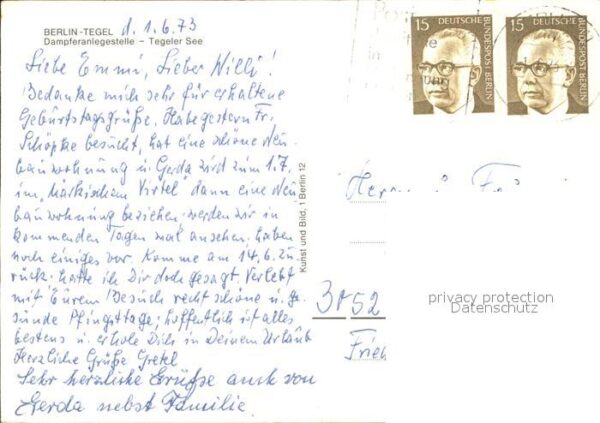 BERLIN-TEGEL d. 1.6.73
Dampferanlegestelle – Tegeler See
Liebe Emmi, Lieber Willi!
Bedanke mich sehr für erhaltene
Geburtstagsgrüße. Habe gestern Fr.
Schöpke besucht, hat eine schöne Neu-
bauwohnung u. Gerda wird zum 1.7.
im "Märkischen Virtel" dann eine Neu
bauwohnung beziehen, werden wir in
kommenden Tagen mal ansehen, haben
noch einiges vor. Komme am 14.6. zu
rück, hatte ich Dir doch gesagt. Verlebt
mit Eurem Besuch recht schöne u. ge
sunde Pfingsttage, hoffentlich ist alles
bestens u. erhole Dich in Deinem Urlaub
Herzliche Grüße Gretel
Sehr herzliche Grüße auch von
Gerda nebst Familie.
Kunst und Bild, 1 Berlin 12
15 DEUTSCHE BUNDESPOST BERLIN
15 DEUTSCHE BUNDESPOST BERLIN
3052
privacy protection
Datenschutz